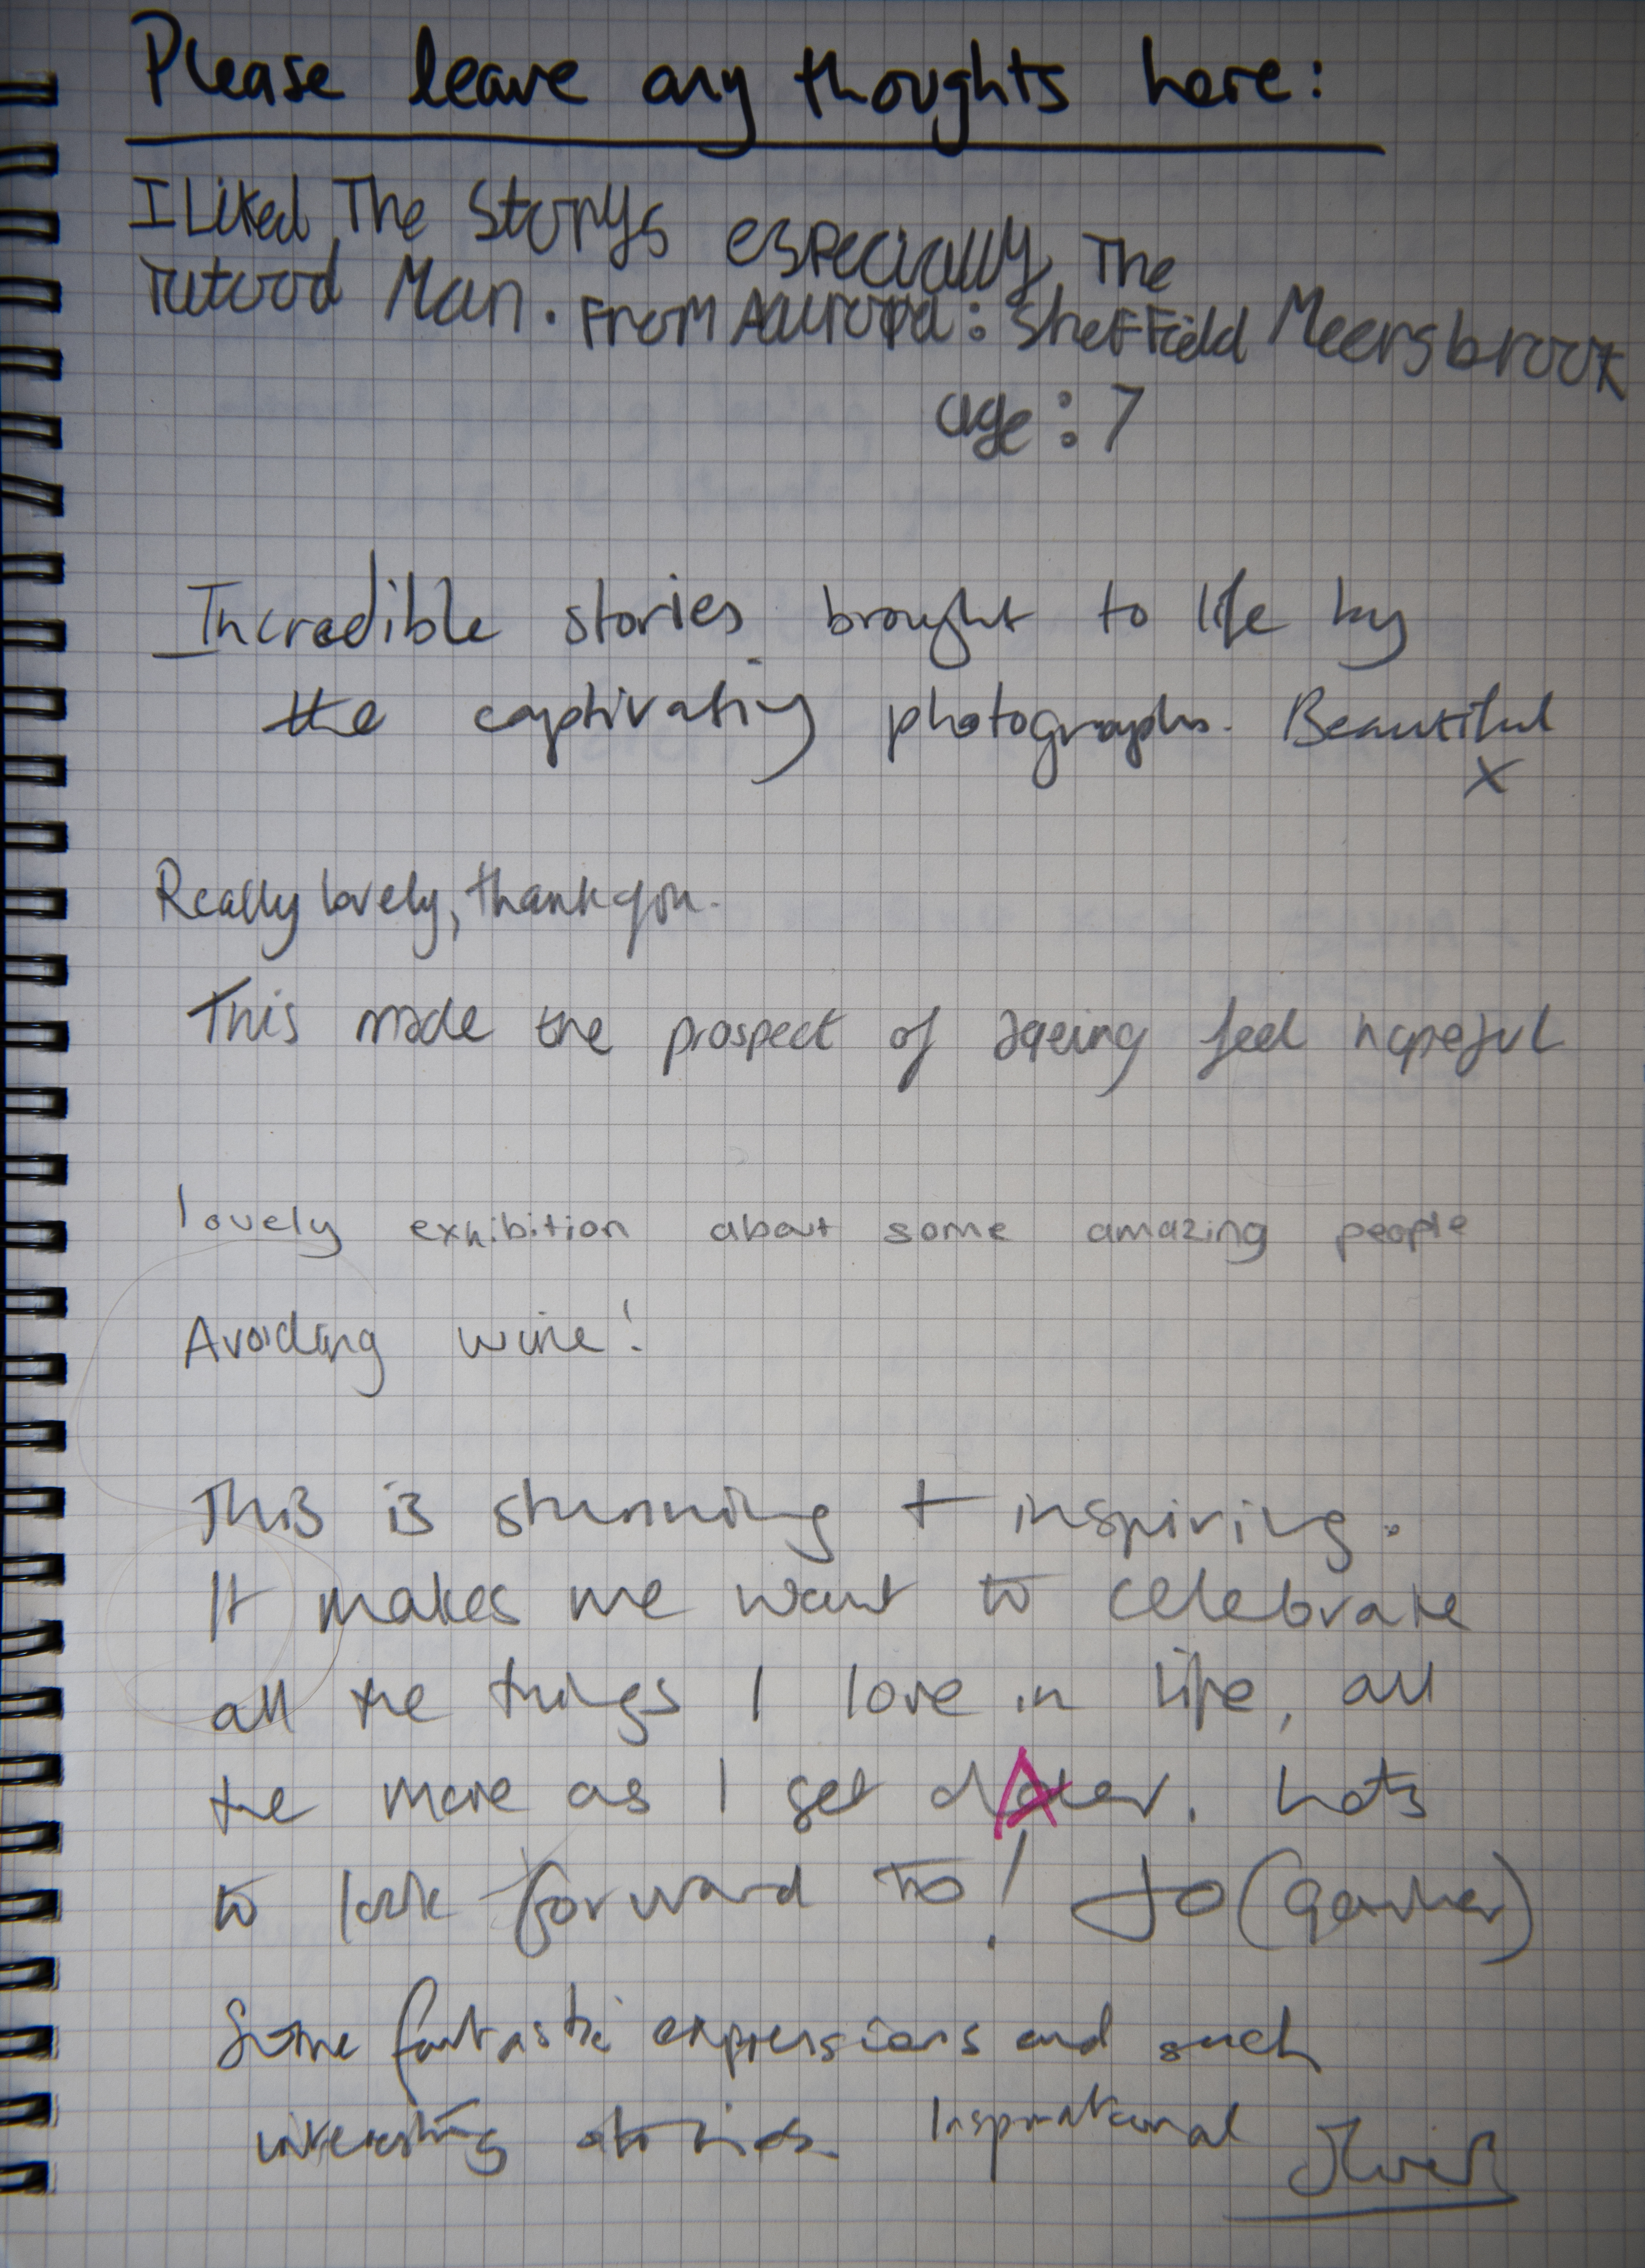 Please leave any thoughts here:
I Liked The Storys especially The
Tatood Man. From Aaurora: Sheffield Meersbrook
age: 7
Incredible stories brought to life by
the captivating photographs. Beautiful
x
Really lovely, thankyou.
This made the prospect of ageing feel hopeful
lovely exhibition about some amazing people
Avoiding wine!
This is stunning + inspiring.
It makes me want to celebrate
all the things I love in life, all
the more as I get older. Lots
to look forward to! Jo
Some fantastic expressions and such
interesting stories. Inspirational